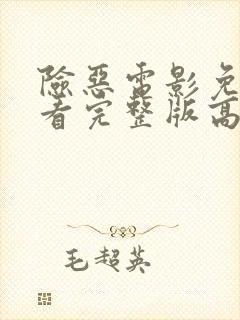 險惡電影免
看完整版高
毛超英